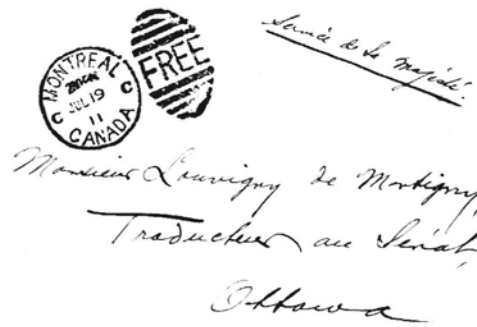 MONTREAL
C JUL 19 C
11
CANADA
FREE
Service de Sa Majesté.
Monsieur Louvigny de Montigny,
Traducteur au Sénat,
Ottawa